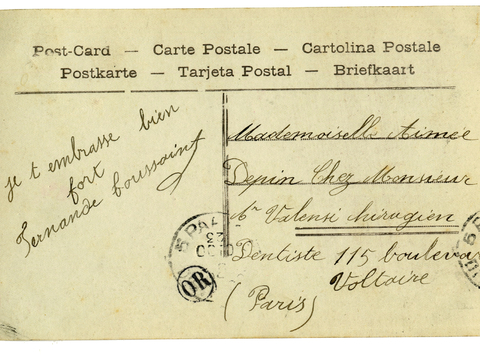 Post-Card — Carte Postale — Cartolina Postale
Postkarte — Tarjeta Postal — Briefkaart
je t embrasse bien
fort
Fernande Toussaint
Mademoiselle Aimée
Depin Chez Monsieur
Valensi chirugien
Dentiste 115 bouleva
Voltaire
(Paris)
OR